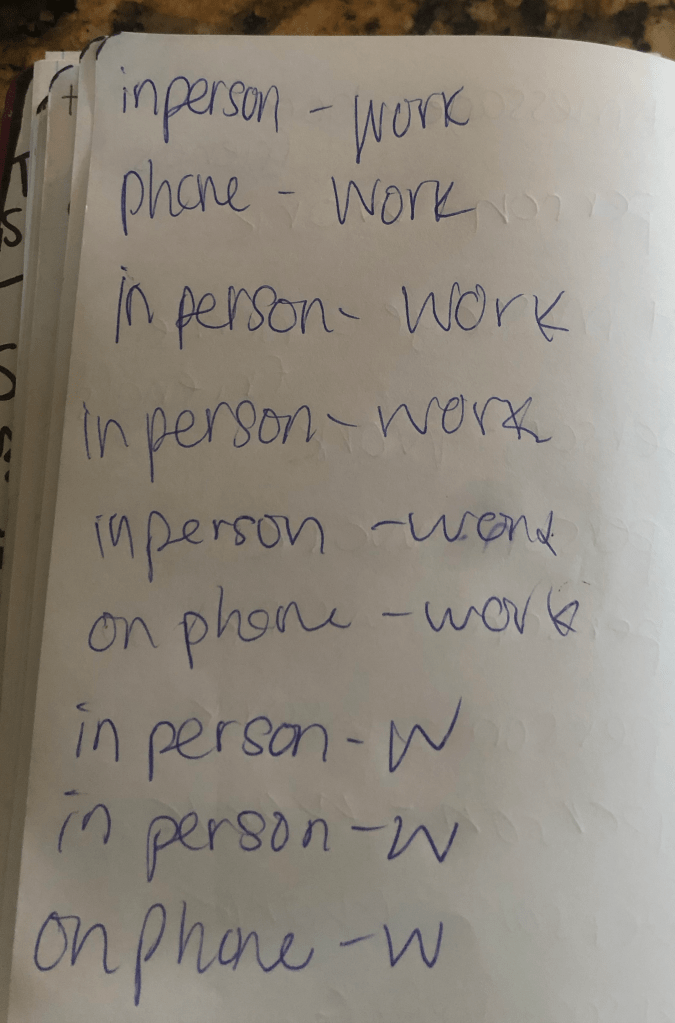 inperson - work
phone - work
in person - work
in person - work
inperson - work
on phone - work
in person - W
in person - W
on phone - W